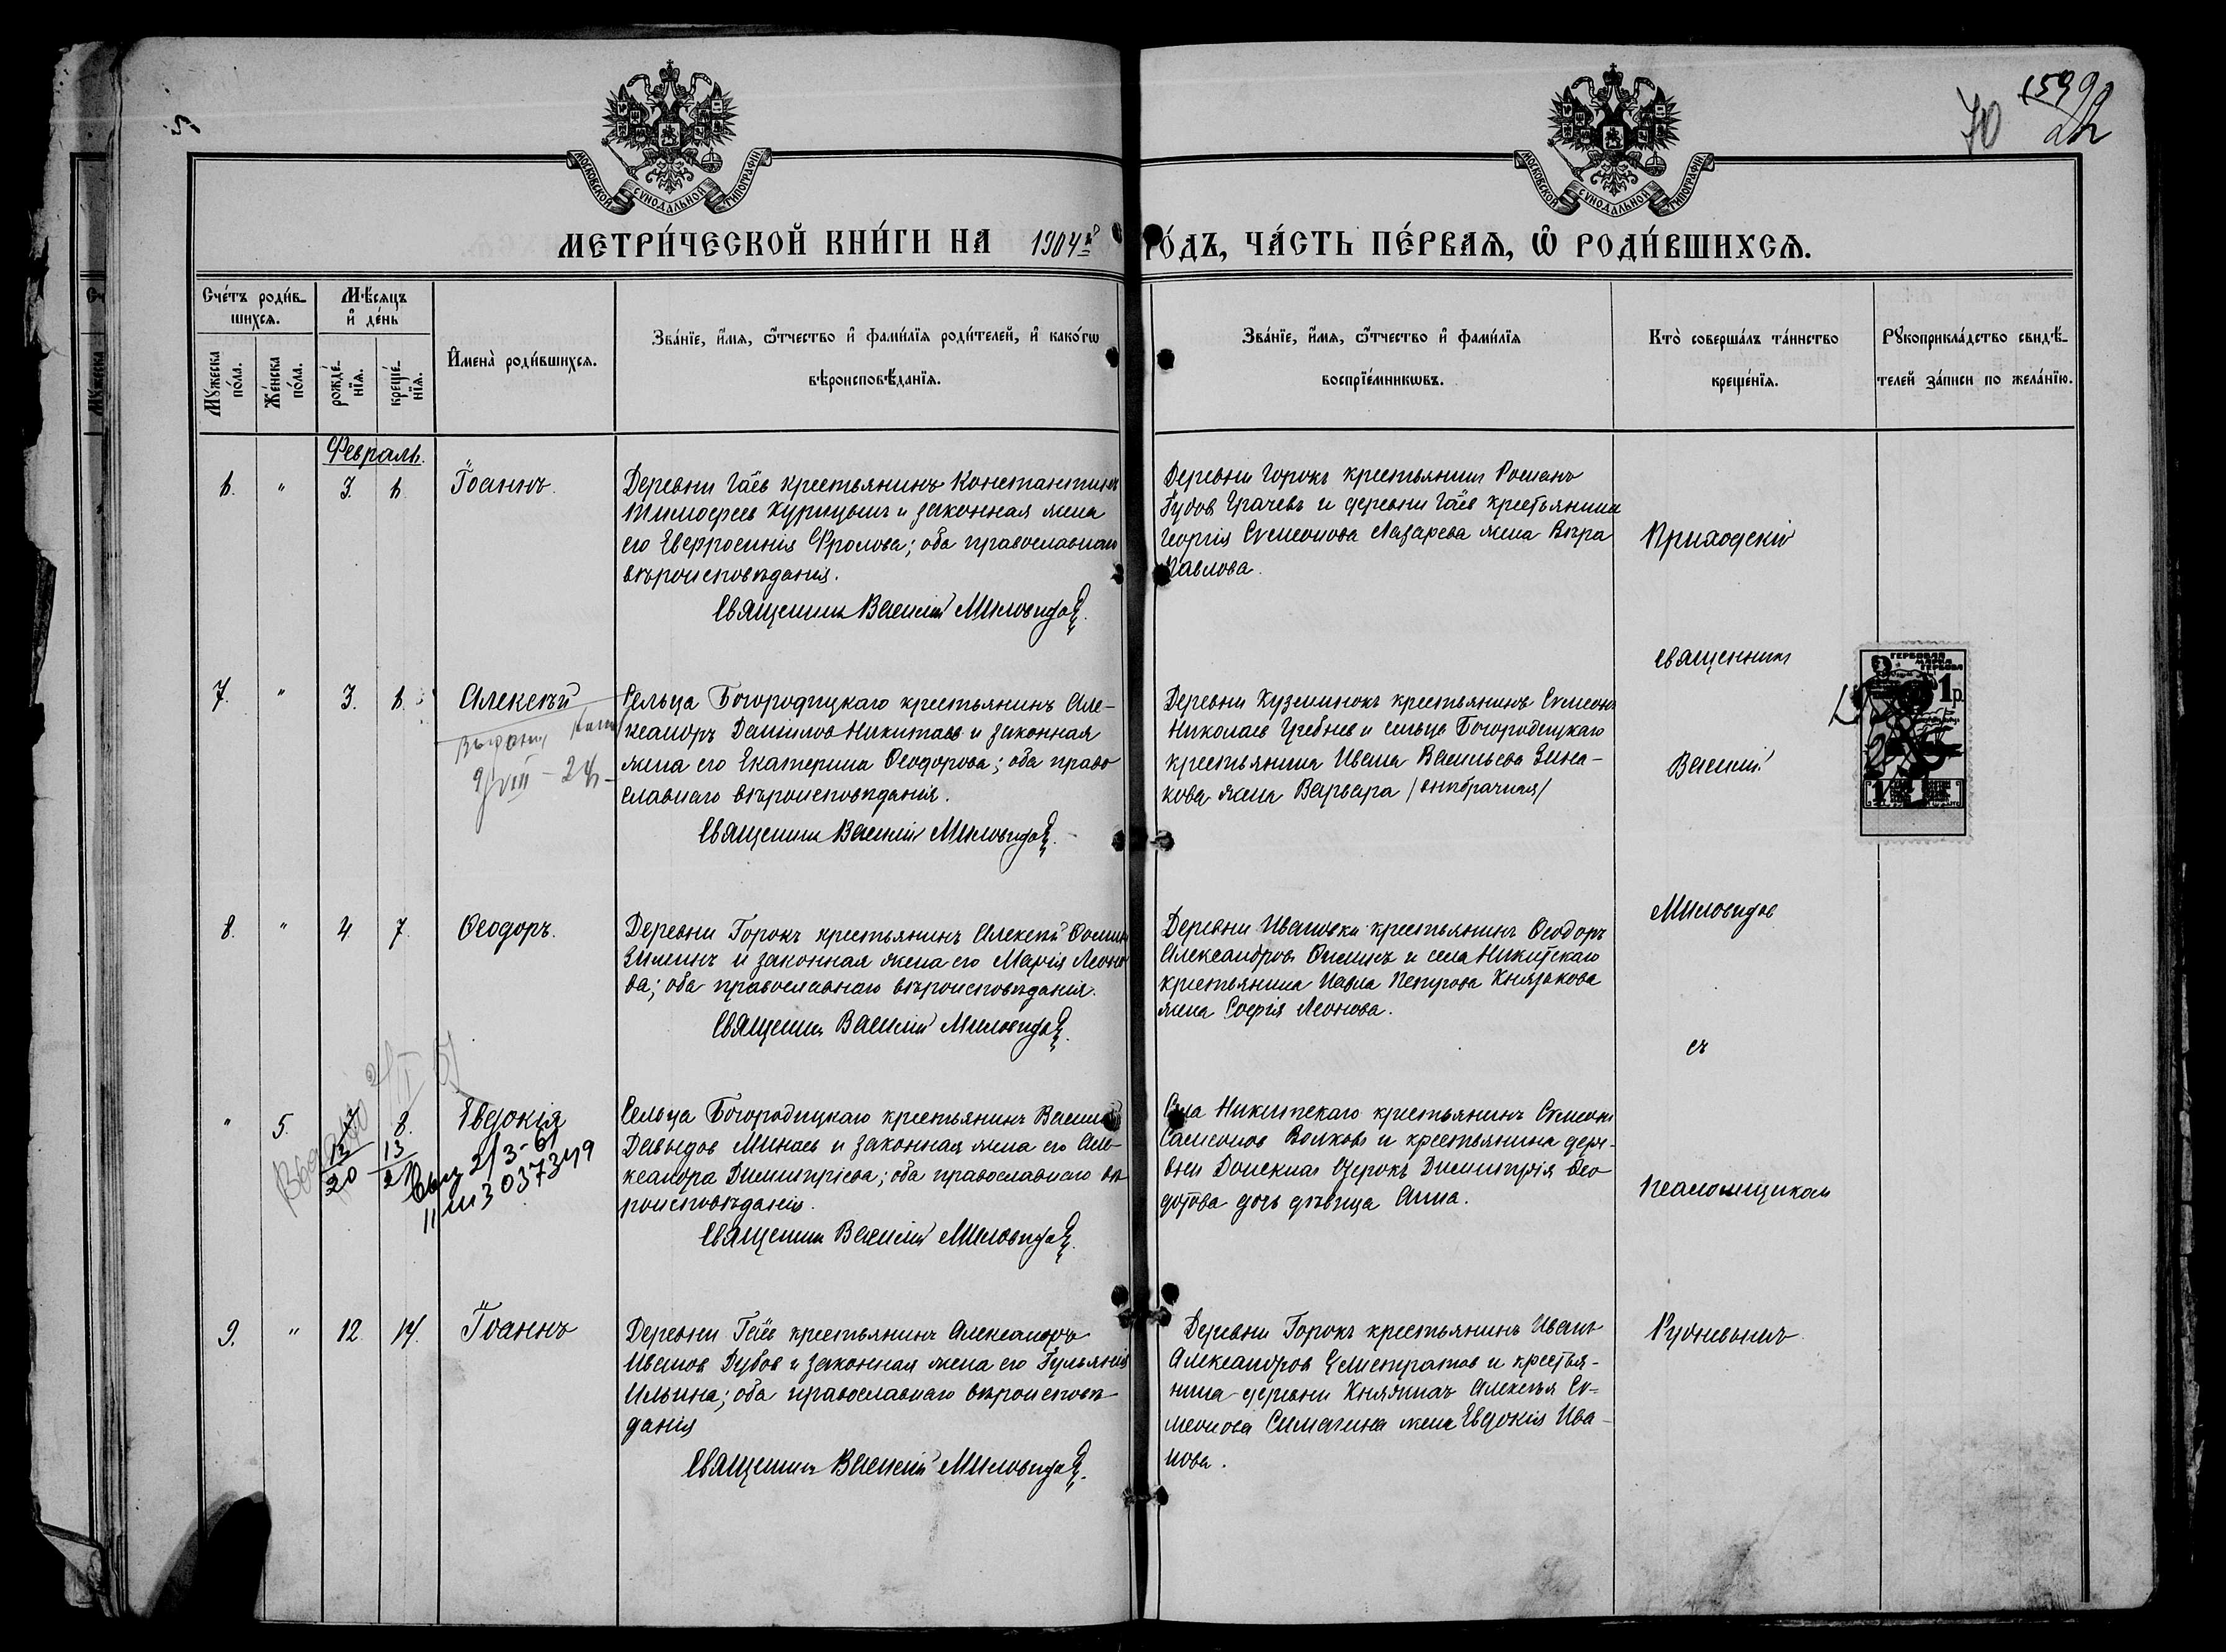 5
70
159
МОСКОВСКОЙ СѴНОДАЛЬНОЙ ТИПОГРАФІИ
МОСКОВСКОЙ СѴНОДАЛЬНОЙ ТИПОГРАФІИ
МЕТРИ́ЧЕСКОЙ КНИ́ГИ НА 1904й ГО́ДЪ, ЧА́СТЬ ПЕ́РВАЯ, Ѡ РОДИ́ВШИХСЯ.
Сче́тъ роди́вшихся.
Мѣ́сяцъ и де́нь
Мꙋ́жеска по́ла.
Же́нска по́ла.
рожде́нїя.
креще́нїя.
Имена̀ роди́вшихся.
Зва́нїе, и́мя, ѻ́тчество и фами́лїя роди́телей, и како́гѡ
вѣроисповѣ́данїя.
Зва́нїе, и́мя, ѻ́тчество и фами́лїя
воспрїе́мникѡвъ.
Кто̀ соверша́лъ та́инство
креще́нїя.
Рꙋкоприкла́дство свидѣ́-
телей за́писи по жела́нїю.
Февраль.
6. " 3. 6. Іоаннъ.
Деревни Гаёв крестьянинъ Константинъ
Тимофеев Курицынъ и законная жена
его Евфросинія Фролова; оба православнаго
вѣроисповѣданія.
Священникъ Василій Миловидовъ.
Деревни Горокъ крестьянинъ Романъ
Грачевъ и деревни Гаёв крестьянина
Георгія Сѵмеонова Лазарева жена Вѣра
Павлова.
7. " 3. 6. Алексѣй
Сельца Богородицкаго крестьянинъ Але-
ксандръ Данилов Никитаев и законная
жена его Екатерина Ѳеодорова; оба право
славнаго вѣроисповѣданія.
Священникъ Василій Миловидовъ.
Деревни Кузминокъ крестьянинъ Сѵмеонъ
Николаев Гребнев и сельца Богородицкаго
крестьянина Ивана Васильева Зина-
кова жена Варвара /внебрачная/
ГЕРБОВАЯ МАРКА
1 р.
8. " 4 7. Ѳеодоръ.
Деревни Горокъ крестьянинъ Алексѣй Ѳомин
Зиминъ и законная жена его Марія Леоно
ва; оба православнаго вѣроисповѣданія.
Священникъ Василій Миловидовъ.
Деревни Ивановки крестьянинъ Ѳеодоръ
Александров и села Никитскаго
крестьянина Павла Петрова Князькова
жена Софія Леонова.
" 5. 7 8. Евдокія
13 13
20
2/3-61
037349
Сельца Богородицкаго крестьянинъ Василій
Давыдов Минаев и законная жена его Але-
ксандра Димитріева; оба православнаго вѣ
роисповѣданія.
Священникъ Василій Миловидовъ.
Села Никитскаго крестьянинъ Сѵмеонъ
Самсонов Волковъ и крестьянина дере-
вни Донскихъ Озерокъ Димитрія Ѳео
дотова дочь дѣвица Анна.
9. " 12. 14. Іоаннъ
Деревни Гаёв крестьянинъ Александръ
Иванов Дубов и законная жена его Іульянія
Ильина; оба православнаго вѣроисповѣ
данія
Священникъ Василій Миловидовъ.
Деревни Горокъ крестьянинъ Иванъ
Александров Селистратов и крестья-
нина деревни Княжихъ Алексѣя Сѵ-
меонова Симагина жена Евдокія Ива-
нова.
Приходскій
священникъ
Василій
Миловидов
съ
псаломщикомъ
Рудневымъ